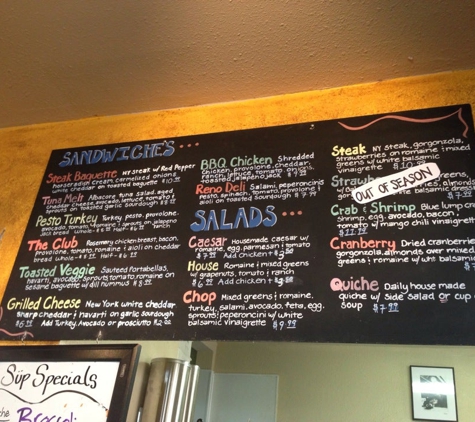 SANDWICHE'S
Steak Baguette NY steak w/ Red Pepper
horseradish cream, carmelized onions,
white cheddar on toasted baguette
Tuna Melt Albacore tuna salad, aged
cheddar cheese, avocado, lettuce, sprouts,
tomato on garlic sourdough
Pesto Turkey Turkey, pesto, provolone,
avocado, tomato, sprouts on jalapeno
jack bread Half-
The Club Rosemary chicken breast, bacon,
provolone, tomato, romaine & aioli on cheddar
bread whole- Half-
Toasted Veggie Sauteed Portabellas,
havarti, avocado, sprouts, tomato, romaine on
sesame baguette w/ dill hummus
Grilled Cheese New York white cheddar
sharp cheddar & havarti on garlic sourdough
$6.99 Add Turkey, Avocado or prosciutto $2.00
BBQ Chicken Shredded
chicken, provolone, cheddar,
ranch, lettuce, tomato, onions,
toasted jalapeno jack $7.99
Reno Deli Salami, peperoncini
pesto, spinach, tomato, provolone,
aioli on toasted sourdough $7.99
SALADS
Caesar Housemade caesar w/
romaine, egg, parmesan & tomato
$7.99 Add chicken
House Romaine & mixed greens
w/ grapenuts, tomato & ranch
$6.99 Add chicken
Chop Mixed greens & romaine,
turkey, salami, avocado, feta, egg,
sprouts, peperoncini w/ white
balsamic vinaigrette $9.99
Steak NY steak, gorgonzola,
strawberries on romaine & mixed
greens w/ white balsamic
vinaigrette
Strawb greens,
OUT OF SEASON
Crab & Shrimp Blue lump crab
shrimp, egg, avocado, bacon,
tomato w/ mango chili vinaigrette
Cranberry Dried cranberries
gorgonzola, almonds over mixed
greens & romaine w/ wht balsamic
Quiche Daily house made
quiche w/ side salad or cup
soup $7.99
Süp Specials
Brocoli